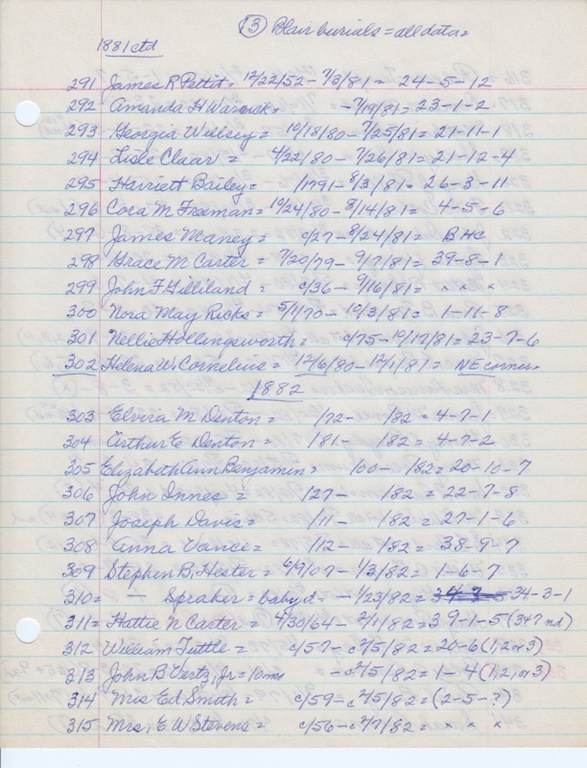 ③ Blair burials = all data =
1881 ctd
291 James R Pettit = 12/22/52 - 7/3/81 = 24-5-12
292 Amanda H Warrick = - 7/19/81 = 23-1-2
293 Georgia Willsey = 10/18/80 - 7/25/81 = 21-11-1
294 Lisle Clear = 4/22/80 - 7/26/81 = 21-12-4
295 Harriett Bailey = /1791 - 8/3/81 = 26-3-11
296 Cora M Freeman = 10/24/80 - 8/14/81 = 4-5-6
297 James Maney = c/27 - 8/24/81 = BHC
298 Grace M Carter = 7/20/79 - 9/7/81 = 39-8-1
299 John F Gilliland = c/36 - 9/16/81 = x x x
300 Nora May Ricks = 5/1/70 - 10/3/81 = 1-11-8
301 Nellie Hollingsworth = c/75 - 10/17/81 = 23-7-6
302 Helena W. Cornelius = 12/6/80 - 12/1/81 = NE corner
1882
303 Elvira M Denton = /72 - /82 = 4-7-1
304 Arthur E Denton = /81 - /82 = 4-7-2
305 Elizabeth Ann Benjamin = /00 - /82 = 20-10-7
306 John Innes = /27 - /82 = 22-7-8
307 Joseph Davis = /11 - /82 = 27-1-6
308 Anna Vance = /12 - /82 = 38-9-7
309 Stephen B. Hester = 6/9/07 - 1/3/82 = 1-6-7
310 = — Spraker = baby d - 1/23/82 = 34-3-1
311 = Hattie N Carter = 4/30/64 - 2/1/82 = 39-1-5 (3+7 nd)
312 William Tuttle = c/57 - c2/5/82 = 20-6 (1,2 or 3)
313 John B Vertz, Jr = 10ms - c2/5/82 = 1-4 (1,2, or 3)
314 Mrs Ed Smith = c/59 - c2/5/82 = (2-5-?)
315 Mrs. E W Stevens = c/56 - c2/7/82 = x x x